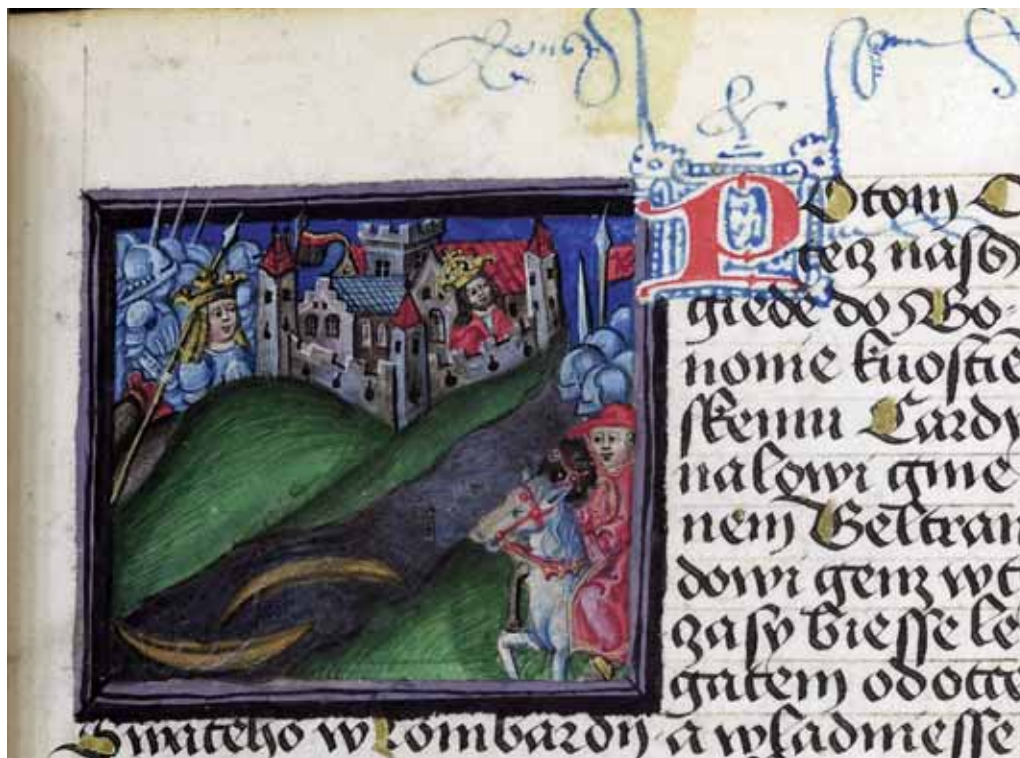 Potom O
tecz nass
giede do Bo-
nome kuostie
skemu Cardy
nalowi gme
nem Beltran
dowi genz w t
zasy biesse le
gatem od otcze
Swateho w Lombardy a wladniesse